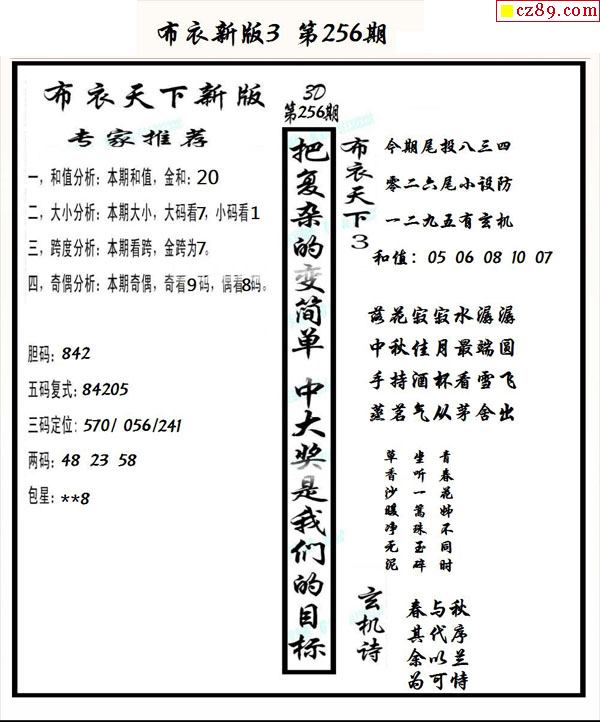 cz89.com
布衣新版3 第256期
布衣天下新版
专家推荐
一，和值分析：本期和值，金和：20
二，大小分析：本期大小，大码看7，小码看1
三，跨度分析：本期看跨，金跨为7。
四，奇偶分析：本期奇偶，奇看9码，偶看8码。
胆码：842
五码复式：84205
三码定位：570/ 056/241
两码：48 23 58
包星：**8
3D
第256期
把复杂的变简单 中大奖是我们的目标
布衣天下3
今期尾投八三四
零二六尾小设防
一二九五有玄机
和值：05 06 08 10 07
落花寂寂水潺潺
中秋佳月最端圆
手持酒杯看雪飞
蒸茗气从茅舍出
青春花姊不同时
坐听一篙珠玉碎
草香沙暖净无泥
玄机诗
春与秋
其代序
余以兰
为可恃